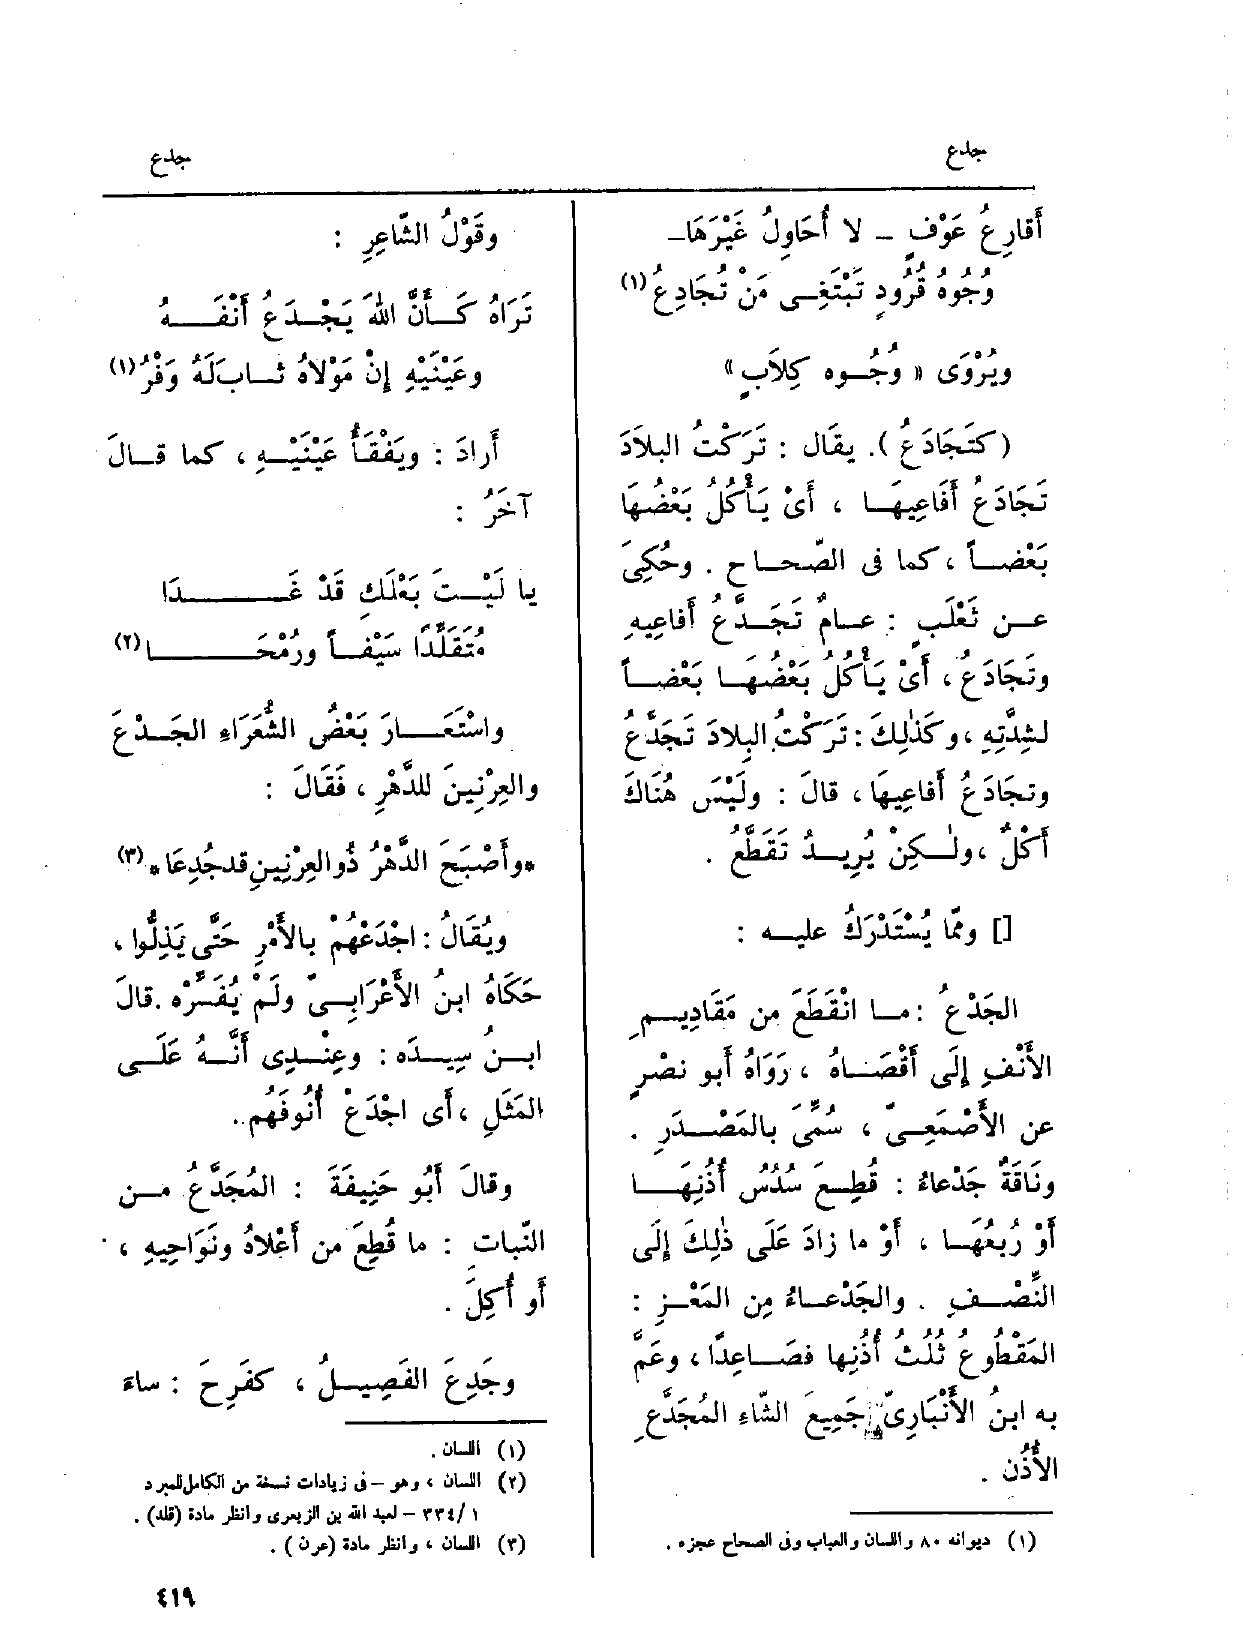 جدع
جدع
أَقارِعُ عَوْفٍ – لا أُحَاوِلُ غَيْرَهَا–
وُجُوهُ قُرُودٍ تَبْتَغِى مَنْ تُجَادِعُ (١)
ويُرْوَى « وُجُوه كِلاَبٍ »
(كتَجَادَعُ). يقال : تَرَكْتُ البلادَ
تَجَادَعُ أَفَاعِيهَا ، أَىْ يَأْكُلُ بَعْضُهَا
بَعْضاً ، كما فى الصّحاح . وحُكِىَ
عن ثَعْلَبٍ : عامٌ تَجَدَّعُ أَفاعِيهِ
وتَجَادَعُ ، أَىْ يَأْكُلُ بَعْضُهَا بَعْضاً
لشِدَّتِهِ ، وكَذٰلِكَ : تَرَكْتُ البِلادَ تَجَدَّعُ
وتجَادَعُ أَفاعِيهَا ، قالَ : ولَيْسَ هُنَاكَ
أَكْلٌ ، ولٰكِنْ يُرِيدُ تَقَطَّعُ .
[] وممّا يُسْتَدْرَكُ عليه :
الجَدْعُ : ما انْقَطَعَ من مَقَادِيمِ
الأَنْفِ إِلَى أَقْصَاهُ ، رَوَاهُ أَبو نصْرٍ
عن الأَصْمَعِىّ ، سُمِّىَ بالمَصْدَرِ .
ونَاقَةٌ جَدْعاءُ : قُطِعَ سُدُسُ أُذُنِهَا
أَوْ رُبعُهَا ، أَوْ ما زادَ عَلَى ذٰلِكَ إِلَى
النِّصْفِ . والجَدْعاءُ مِن المَعْزِ :
المَقْطُوعُ ثُلُثُ أُذُنِها فصَاعِدًا ، وعَمَّ
به ابنُ الأَنْبَارِىّ جَمِيعَ الشّاءِ المُجَدَّعِ
الأُذُنِ .
(١) ديوانه ٨٠ واللسان والعباب وفى الصحاح عجزه .
وقَوْلُ الشّاعرِ :
تَرَاهُ كَأَنَّ اللهَ يَجْدَعُ أَنْفَهُ
وعَيْنَيْهِ إِنْ مَوْلاهُ ثابَ لَهُ وَفْرُ (١)
أَرادَ : ويَفْقَأُ عَيْنَيْهِ ، كما قالَ
آخَرُ :
يا لَيْتَ بَعْلَكِ قَدْ غَدَا
مُتَقَلِّدًا سَيْفاً ورُمْحَا (٢)
واسْتَعَارَ بَعْضُ الشُّعَرَاءِ الجَدْعَ
والعِرْنِينَ للدَّهْرِ ، فَقَالَ :
*وأَصْبَحَ الدَّهْرُ ذُو العِرْنِينِ قد جُدِعَا* (٣)
ويُقَالُ : اجْدَعْهُمْ بالأَمْرِ حَتَّى يَذِلُّوا ،
حَكَاهُ ابنُ الأَعْرَابِىّ ولَمْ يُفَسِّرْه . قالَ
ابنُ سِيدَه : وعِنْدِى أَنَّهُ عَلَى
المَثَلِ ، أَى اجْدَعْ أُنُوفَهُم ..
وقالَ أَبُو حَنِيفَةَ : المُجَدَّعُ من
النّباتِ : ما قُطِعَ من أَعْلاهُ ونَوَاحِيهِ ،
أَو أُكِلَ .
وجَدِعَ الفَصِيلُ ، كفَرِحَ : ساءَ
(١) اللسان .
(٢) اللسان ، وهو – فى زيادات نسخة من الكامل للمبرد
١/ ٣٣٤ – لعبد الله بن الزبعرى وانظر مادة (قلد) .
(٣) اللسان ، وانظر مادة (عرن) .
٤١٩